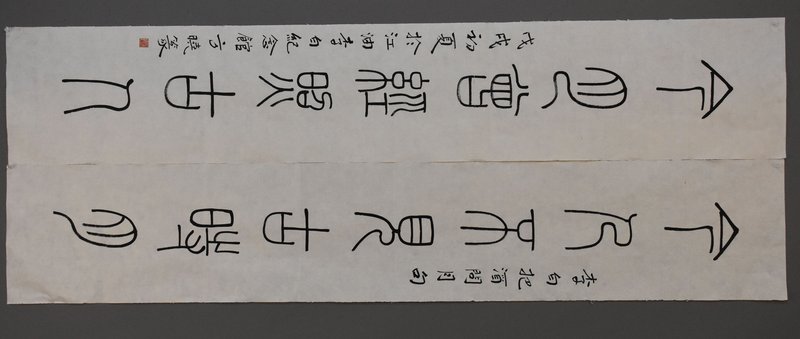 李白把酒問月句
今人不見古時月
今月曾經照古人
戊戌初夏於江油李白紀念館曉篆